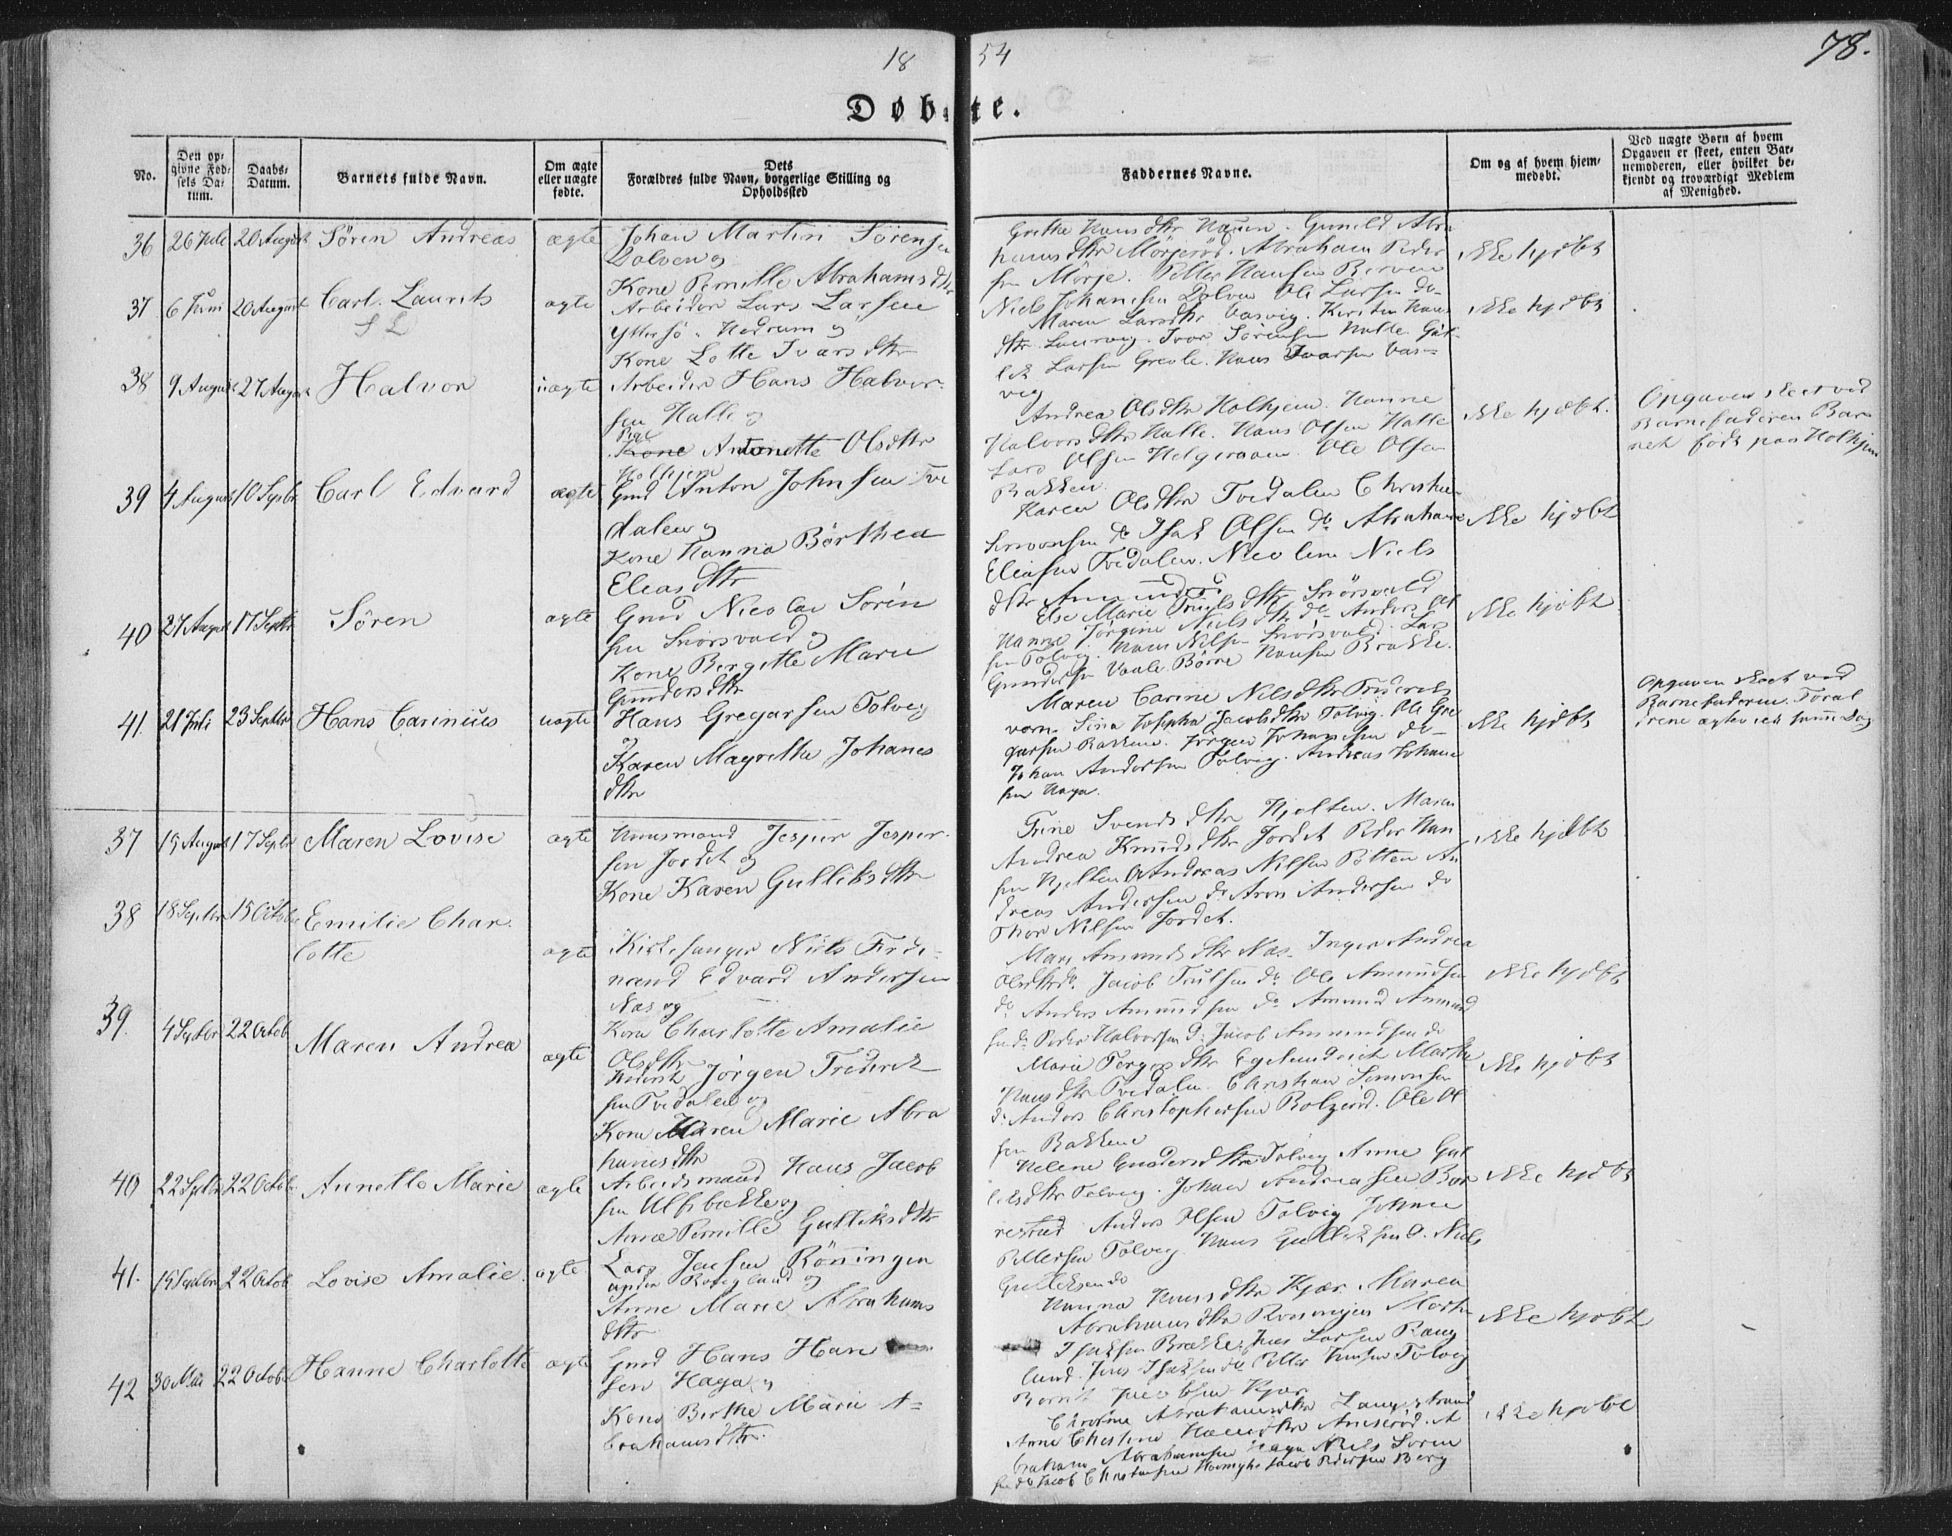 18 54
78.
Døbte.
No.
Den opgivne Fødsels Datum.
Daabs-Datum.
Barnets fulde Navn.
Om ægte eller uægte fødte.
Dets Forældres fulde Navn, borgerlige Stilling og Opholdssted
Faddernes Navne.
Om og af hvem hjemmedøbt.
Ved uægte Børn af hvem Opgaven er skeet, enten Barnemoderen, eller hvilket bekjendt og troværdigt Medlem af Menighed.
36 26 Juli 20 August Søren Andreas ægte
Johan Martin Sørensen
Dolven og
Kone Pernille Abrahamsdtr
Grethe Hansdtr Gunild Abra
hamsdtr Mörjeröd. Abraham Peder
sen Mörje. Petter Hansen Berven
Niels Johansen Dolven Ole Larsen do
ikke hjdbt
37 6 Juni 20 August Carl Laurits ægte
Arbeider Lars Larsen
Yttersö. Hedrum og
Kone Lotte Ivarsdtr
Maren Larsdtr Vasvig. Kirsten Hans
dtr Laurvig. Ivar Sörensen Halle. Gul
lik Larsen Grevle. Hans Ivarsen Vas-
vig
ikke hjdbt
38 9 August 27 August Halvor uægte
Arbeider Hans Halvor-
sen Halle og
Pige
Kone Antonette Olsdtr
Holhjem
Andrea Olsdtr Holhjem. Hanne
Halvorsdtr Halle. Hans Olsen Halle
Lars Olsen Helgeroaen. Ole Olsen
Bakken
ikke hjdbt.
Opgaven skeet ved
Barnefaderen Bar
net født paa Holhjem
39 4 August 10 Septbr Carl Edvard ægte
Gmd Anton Johnsen Tve
dalen og
Kone Hanna Börthea
Eleasdtr
Karen Olsdtr Tvedalen Christen
Simonsen do Isak Olsen do Abraham
Eleasen Tvedalen. Nicoline Niels
dtr
ikke hjdbt
40 27 August 17 Septbr Søren ægte
Gmd Nicolai Sören
sen Snörsvald og
Kone Bergitte Marie
Gundersdtr
Else Marie Truls dtr Snörsvald
Hanne Jørgine Nielsdtr do Anders Ol
sen Tolvig. Hans Nilsen Snörsvald. Lars
Gundersen Vaale. Börre Hansen Brække.
ikke hjdbt
41. 21 Juli 23 Septbr Hans Carinius uægte
Hans Gregarsen Tolvig
og
Karen Magrethe Johanes
dtr
Maren Carine Nilsdtr Friderichs
værn. Sina Josepha Jacobsdtr Tolvig. Ole Gre
garsen Bakkene. Jörgen Johannesen do
Johan Andersen Tolvig. Andreas Johane
sen Haga.
ikke hjdbt
Opgaven skeet ved
Barnefaderen. Foræl
drene ægteviet samme Dag
37 19 August 17 Septbr Maren Lovise ægte
Huusmand Jesper Jesper-
sen Jordet og
Kone Karen Gulliksdtr
Trine Svendsdtr Hjelten. Maren
Andrea Knudsdtr Jordet Peder Han
sen Hjelten Andreas Nilsen Pötten An
dreas Andersen do Aron Andersen do
Thor Nilsen Jordet.
ikke hjdbt
38 18 Septbr 15 Octobr Emilie Char
lotte ægte
Kirkesanger Niels Ferdi-
nand Edvard Andersen
Næs og
Kone Charlotte Amalie
Olsdtr
Mari Amundsdtr Næs. Inger Andrea
Olsdtr do. Jacob Trulsen do Ole Amundsen
do Anders Amundsen do Amund Amund
sen do Peder Halvorsen do Jacob Amundsen do
ikke hjdbt
39. 4 Septbr 22 Octob Maren Andrea ægte
Jörgen Frederik
sen Tvedalen og
Kone Maren Marie Abra
hamsdtr
Maria Torgersdtr Marthe
Hansdtr Tvedalen. Christian Simonsen
do Anders Christophersen Ole Ol
sen Bakkene
ikke hjdbt
40 22 Septbr 22 Octob. Annette Marie ægte
Arbeidsmand Hans Jacob
sen Ulfsbakke og
Anne Pernille Gulliksdtr
Helene Gundersdtr Tolvig Anne Gul
liksdtr Tolvig. Johan Andreasen Bor
restad Anders Olsen Tolvig Johan
Pettersen Tolvig. Hans Gulliksen do. Niels
Gulliksen do
ikke hjdbt
41. 15 Septbr 22 Octob Lovise Amalie. ægte
Lars Jensen Rönningen
under Rougland og
Anne Marie Abrahams
dtr
Hanna Hansdtr Kjær. Maren
Abrahamsdtr Rönningen Morten
Isaksen Brække. Jens Larsen Roug
lund. Jens Isaksen do Petter Hansen Tolvig
Bernt Jacobsen Kjær
ikke hjdbt
42 30 Mai 22 Octob Hanne Charlotte ægte
Gmd Hans Han
sen Haga og
Kone Berthe Marie A-
brahamsdtr.
Abrahamsdtr Langestrand
Anne Christine Hansdtr A
braham Abrahamsen Haga Niels Sören
sen do Jacob Christensen Jacob Pedersen Berg
ikke hjdbt